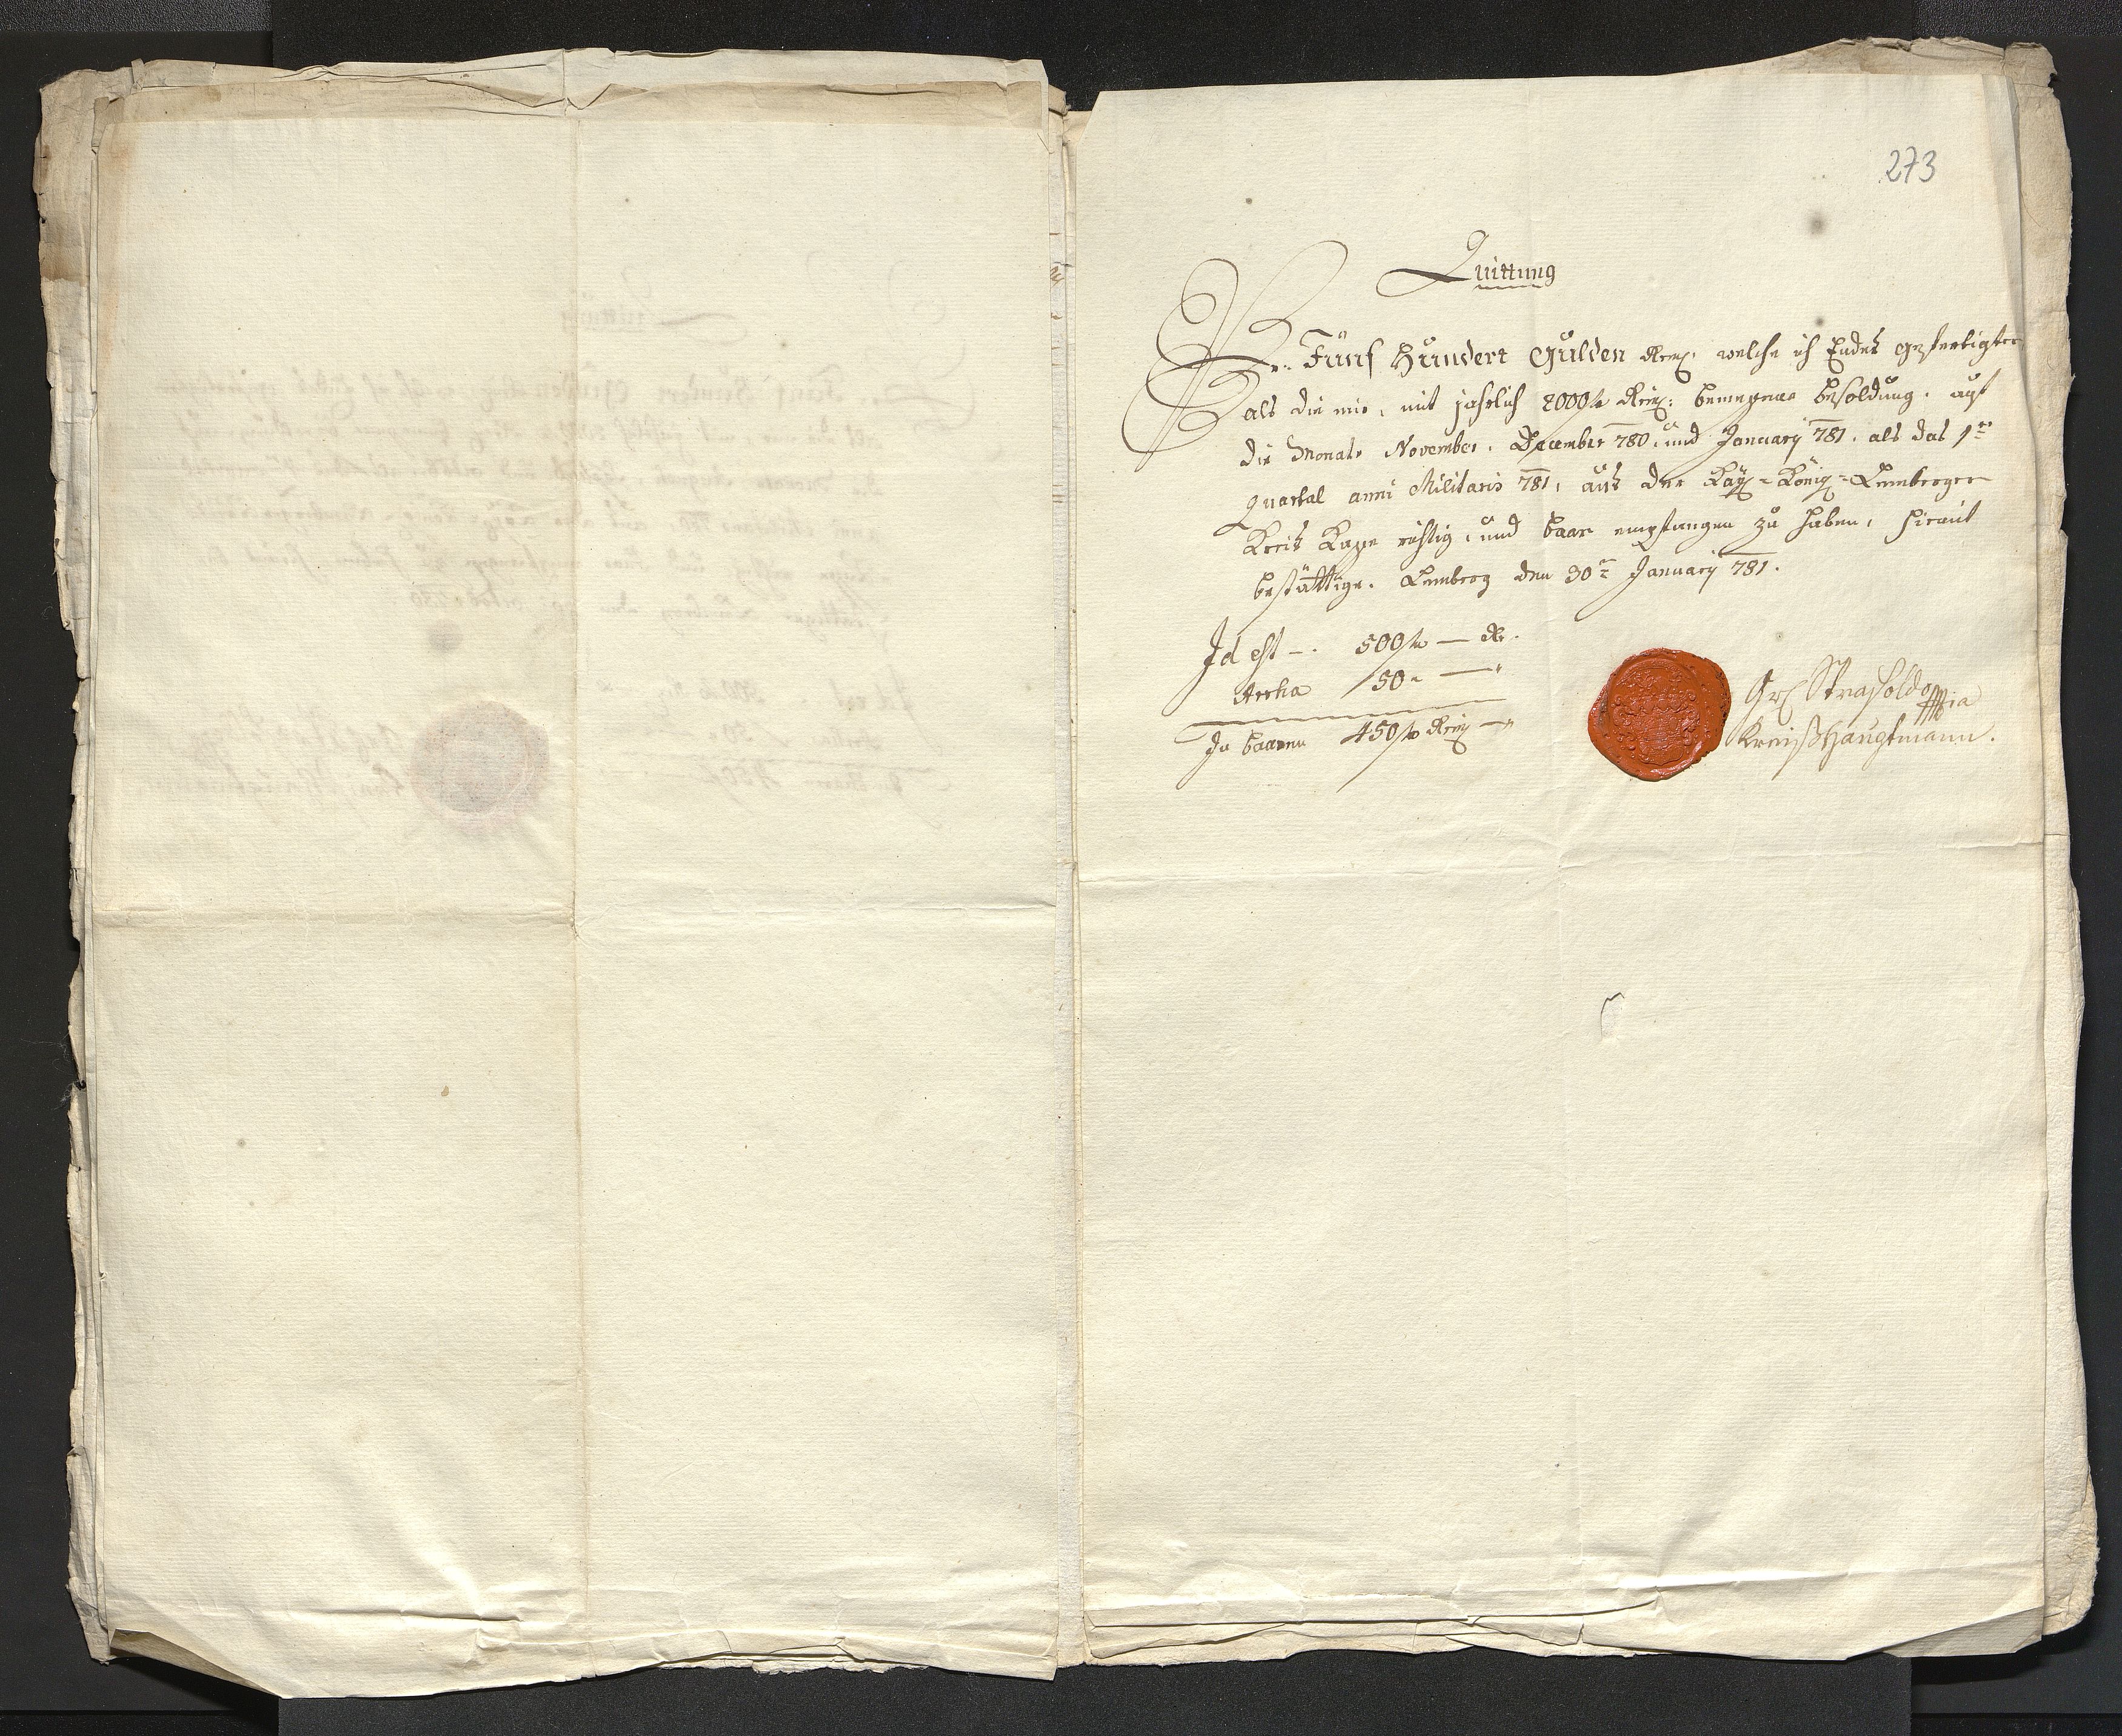 273
Quittung
Per Fünf Hundert Gulden Reiñ. welche ich Endes gefertigter
als die mir, mit jahrlich 2000 fl Reiñ: bemessene Besoldung, auf
die Monate November, December 780, und January 781, als das 1te
Quartal anni Militaris 781, aus der Kay: König: Lemberger
Kreis Kasse richtig, und baar empfangen zu haben, hiemit
bestättige. Lemberg den 30te January 781.
Id est 500 fl — R.
Arrha 50 " — "
In baaren 450 fl Reiñ — "
Gr. Strasoldo mpia
KreißHauptmann.